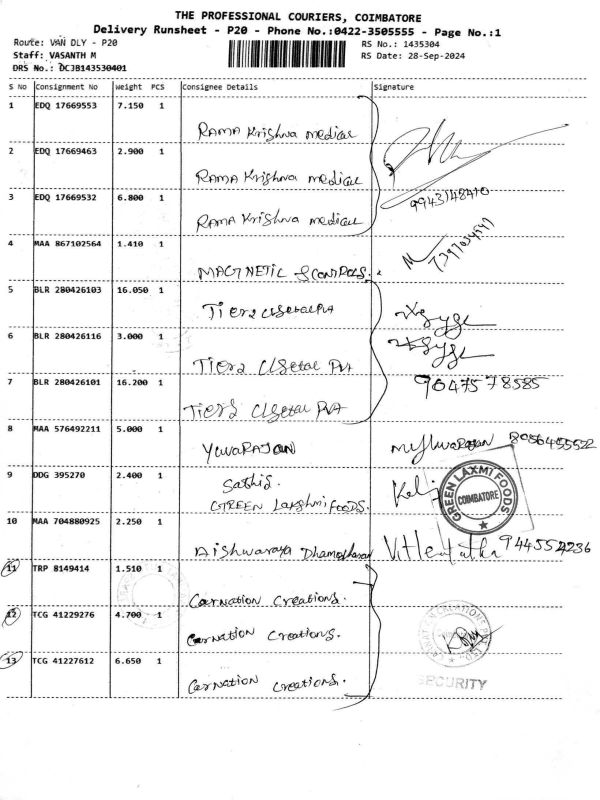 THE PROFESSIONAL COURIERS, COIMBATORE
Delivery Runsheet - P20 - Phone No.:0422-3505555 - Page No.:1
Route: VAN DLY - P20 RS No.: 1435304
Staff: VASANTH M RS Date: 28-Sep-2024
DRS No.: DCJB143530401
S No Consignment No Weight PCS Consignee Details Signature
1 EDQ 17669553 7.150 1
RAMA Krishna medical
2 EDQ 17669463 2.900 1
RAMA Krishna medical
9943148410
3 EDQ 17669532 6.800 1
RAMA Krishna medical
4 MAA 867102564 1.410 1
MAGNETIC
5 BLR 280426103 16.050 1
6 BLR 280426116 3.000 1
7 BLR 280426101 16.200 1
9047578585
8 MAA 576492211 5.000 1
YUVARAJAN
9 DDG 395270 2.400 1
Sathis.
GREEN Lakshmi FOODS.
GREEN LAXMI FOODS
COIMBATORE
10 MAA 704880925 2.250 1
Aishwaraya
11 TRP 8149414 1.510 1
Carnation Creations.
12 TCG 41229276 4.700 1
Carnation Creations.
13 TCG 41227612 6.650 1
Carnation Creations.
SECURITY